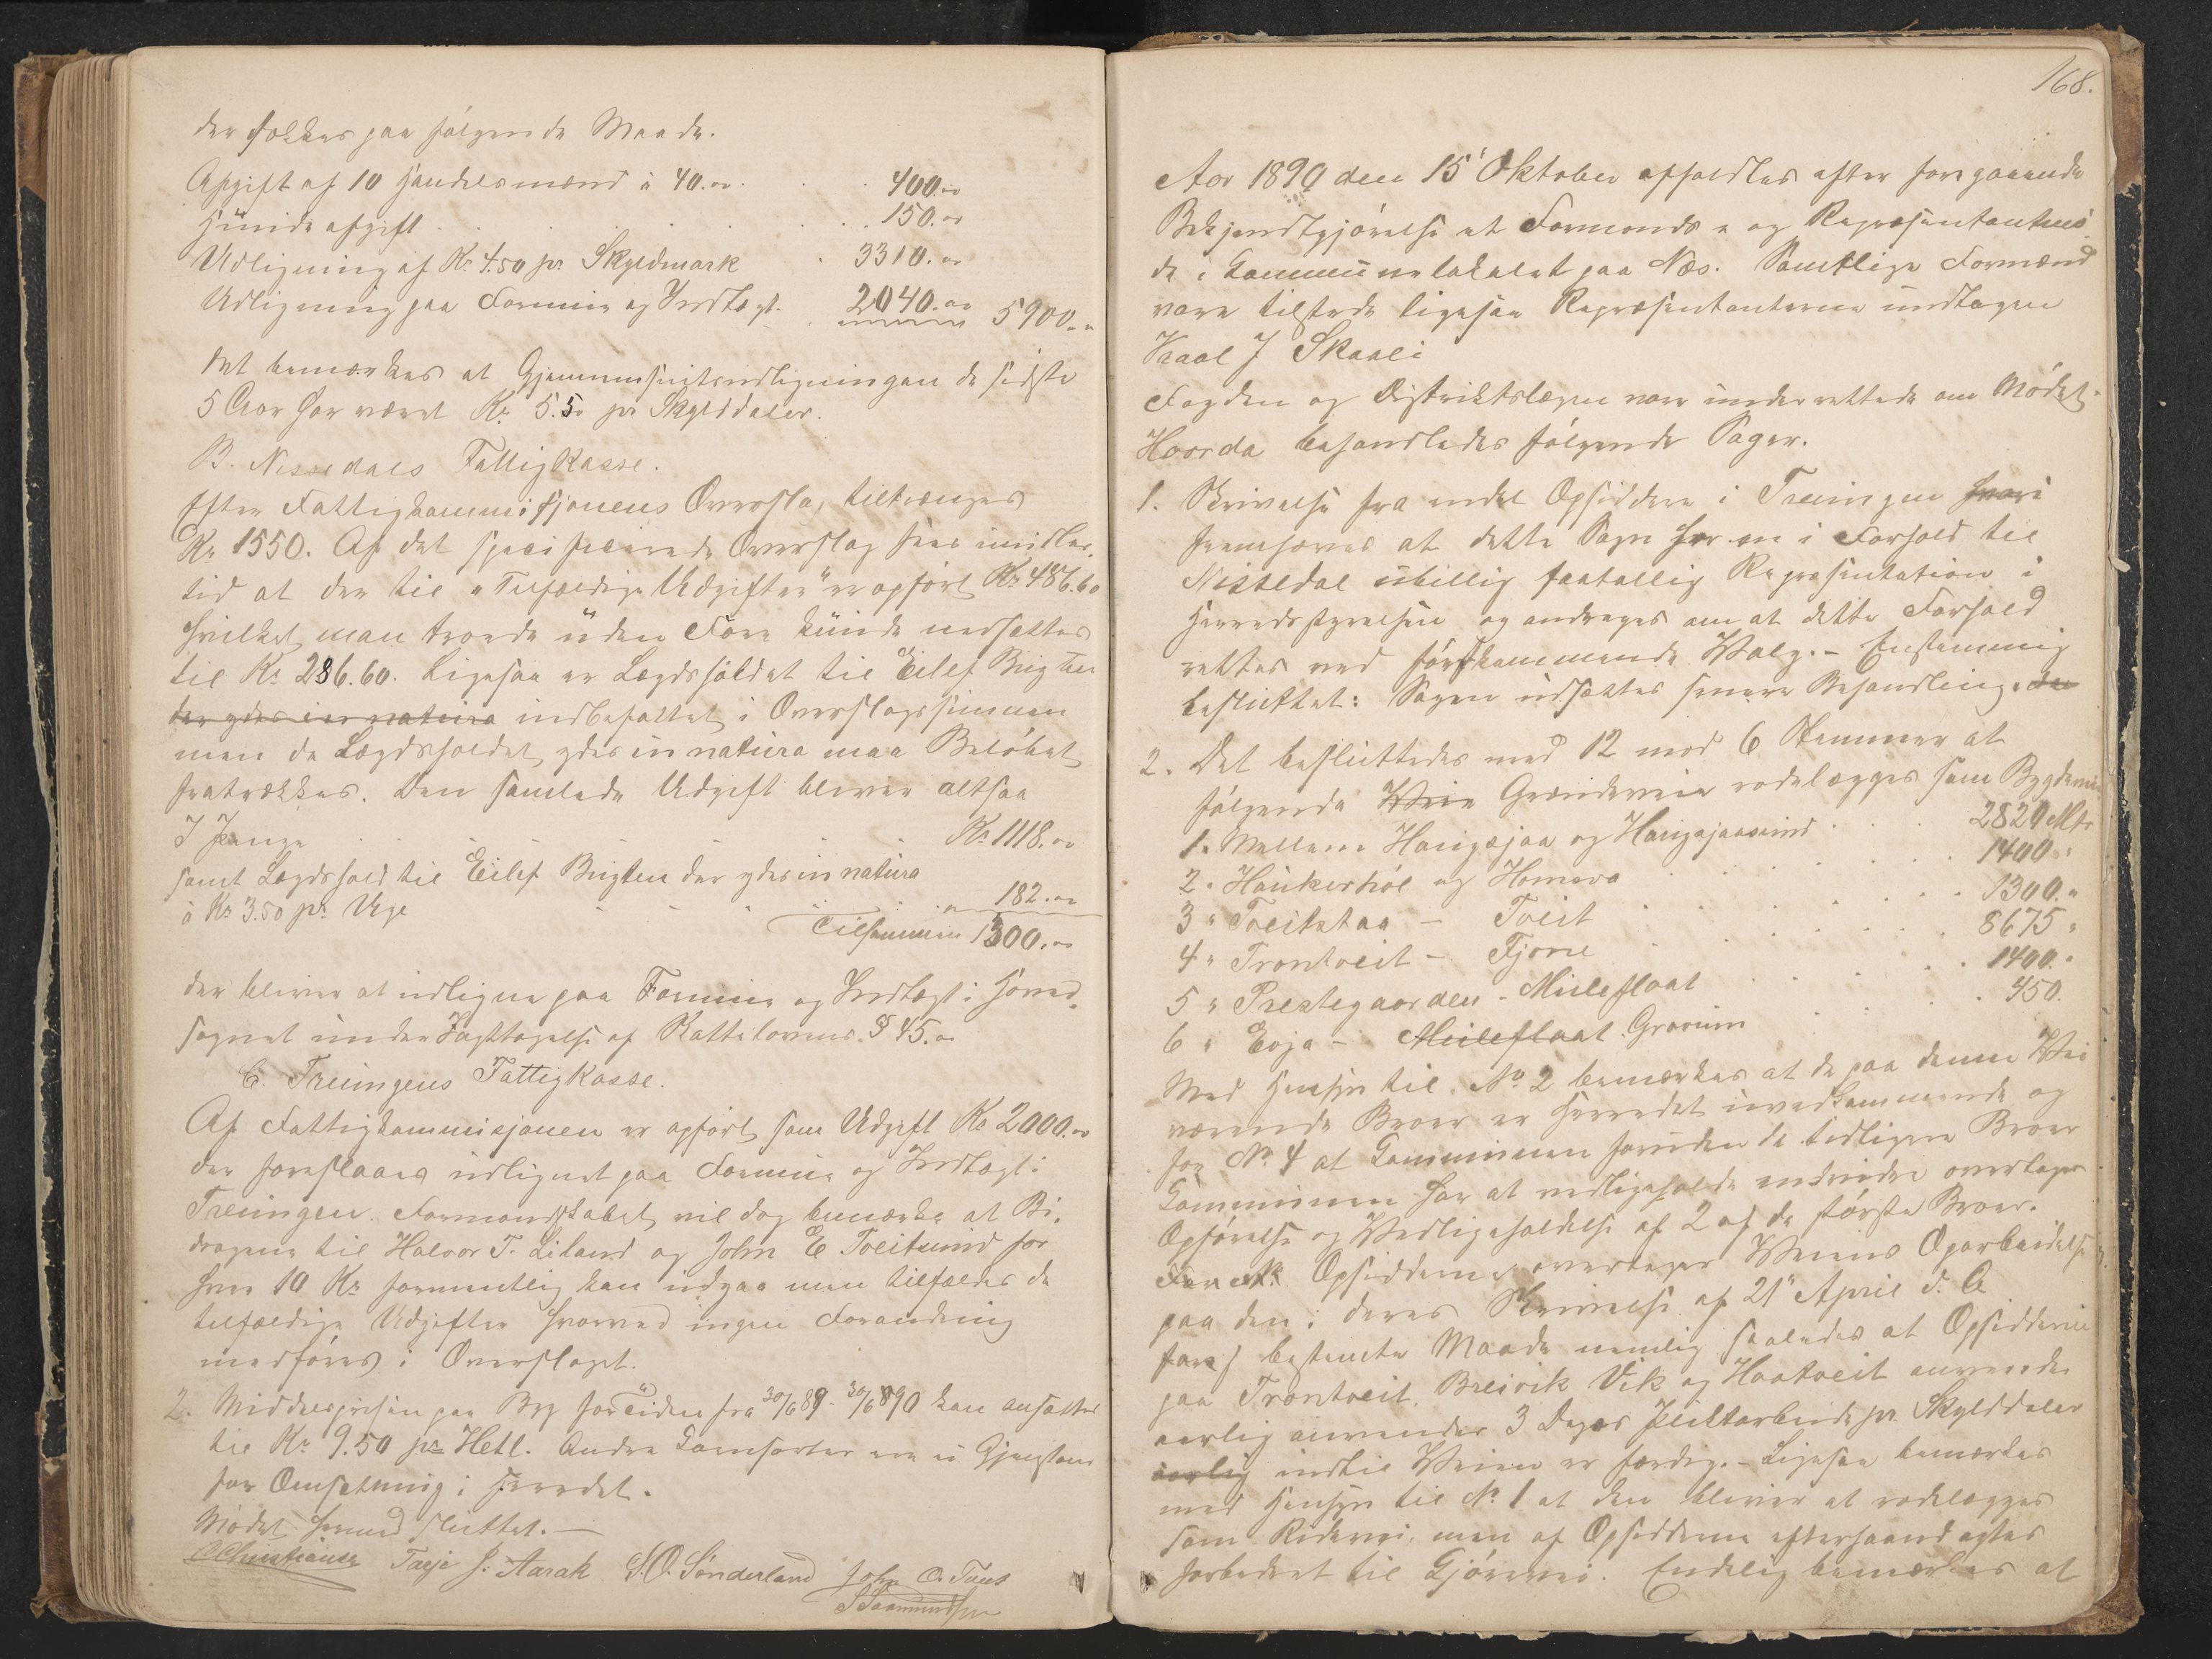 der dækkes paa følgende Maade.
Afgift af 10 Handelsmænd à 40.00 400.00
Hundeafgift 150.00
Udligning af Kr. 4.50 pr Skyldmark 3310.00
Udligning paa Formue og Indtægt. 2040.00 5900.00
Det bemærkes at Gjennemsnitsudligningen de sidste
5 Aar har været Kr. 5.50 pr Skylddaler.
B. Nissedals Fattigkasse.
Efter Fattigkommisjonens Overslag tiltrænges
Kr 1550. Af det specificerede Overslag sees imidler-
tid at der til "Tilfældige Udgifter" er opført Kr. 486.60
hvilket man troede uden Fare kunde nedsættes
til Kr. 286.60. Ligesaa er Lægdsholdet til Eilef Bugten
der ydes in natura indbefattet i Overslagssummen
men da Lægdsholdet ydes in natura maa Beløbet
fratrækkes. Den samlede Udgift bliver altsaa
I Penge Kr. 1118.00
samt Lægdshold til Eilef Bugten der ydes in natura
à Kr. 3.50 pr. Uge 182.00
Tilsammen 1300.00
der bliver at udligne paa Formue og Indtægt i Hoved-
sognet under Iagttagelse af Skattelovens § 45.
C. Treungens Fattigkasse.
Af Fattigkommisjonen er opført som Udgift Kr 2000.00
der foreslaaes udlignet paa Formue og Indtægt i
Treungen. Formandskabet vil dog bemærke at Bi-
dragene til Halvor T. Liland og John E Tveitsund for
hver 10 Kr formentlig kan udgaa men tilfældes de
tilfældige Udgifter hvorved ingen Forandring
medføres i Overslaget.
2. Middelsprisen paa Byg for Tiden fra 30/6 89 - 30/6 890 kan ansættes
til Kr. 9.50 pr Hetl. Andre Kornsorter ere ei Gjenstand
for Omsætning i Herredet.
Mødet hermed sluttet. —
O Christiansen Tarje J. Aarak S. O. Sønderland John O. Taus
S Saamundsen
168.
Aar 1890 den 15' Oktober afholdtes efter foregaaende
Bekjendtgjørelse et Formands- og Repræsentantmø-
de i Kommunelokalet paa Næs. Samtlige Formænd
vare tilstede ligesaa Repræsentanterne undtagen
Kaal J Skaali
Fogden og Distriktslægen vare underrettede om Mødet.
Hvorda behandledes følgende Sager.
1. Skrivelse fra endel Opsiddere i Treungen hvori
fremhæves at dette Sogn har en i Forhold til
Nissedal ubillig faatallig Repræsentation i
Herredsstyrelsen og andrages om at dette Forhold
rettes ved førstkommende Valg. - Enstemmig
besluttet: Sagen udsættes senere Behandling. da
2. Det besluttedes med 12 mod 6 Stemmer at
følgende Veie Grændeveie rodelægges som Bygdevei
1. Mellem Haugsjaa og Haugsjaasund 2820 Mtr
2. Haukerhol og Homova 1400 "
3 " Tveitstaa - Tveit 1300. "
4 " Trontveit - Fjone 8675 "
5 " Prestegaarden - Muleflaat 1400. "
6 " Evja - Muleflaat Gravum 450.
Med Hensyn til No. 2 bemærkes at de paa denne Vei
værende Broer er Herredet uvedkommende og
for No. 4 at Kommunen foruden de tidligere Broer
Kommunen har at vedligeholde endvidere overtager
Opførelse og Vedligeholdelse af 2 af de største Broer.
Opsidderne overtager Veiens Oparbeidelse
paa den i deres Skrivelse af 21' April d. A
bestemte Maade nemlig saaledes at Opsidderne
paa Trontveit, Breivik Vik og Haatveit anvender
aarlig anvender 3 Dages Pliktarbeide pr Skylddaler
aarlig indtil Veien er færdig. - Ligesaa bemærkes
med Hensyn til No. 1 at den bliver at rodelægges
som Ridevei, men af Opsidderne efterhaand agtes
forbedret til Kjørevei. Endelig bemærkes at